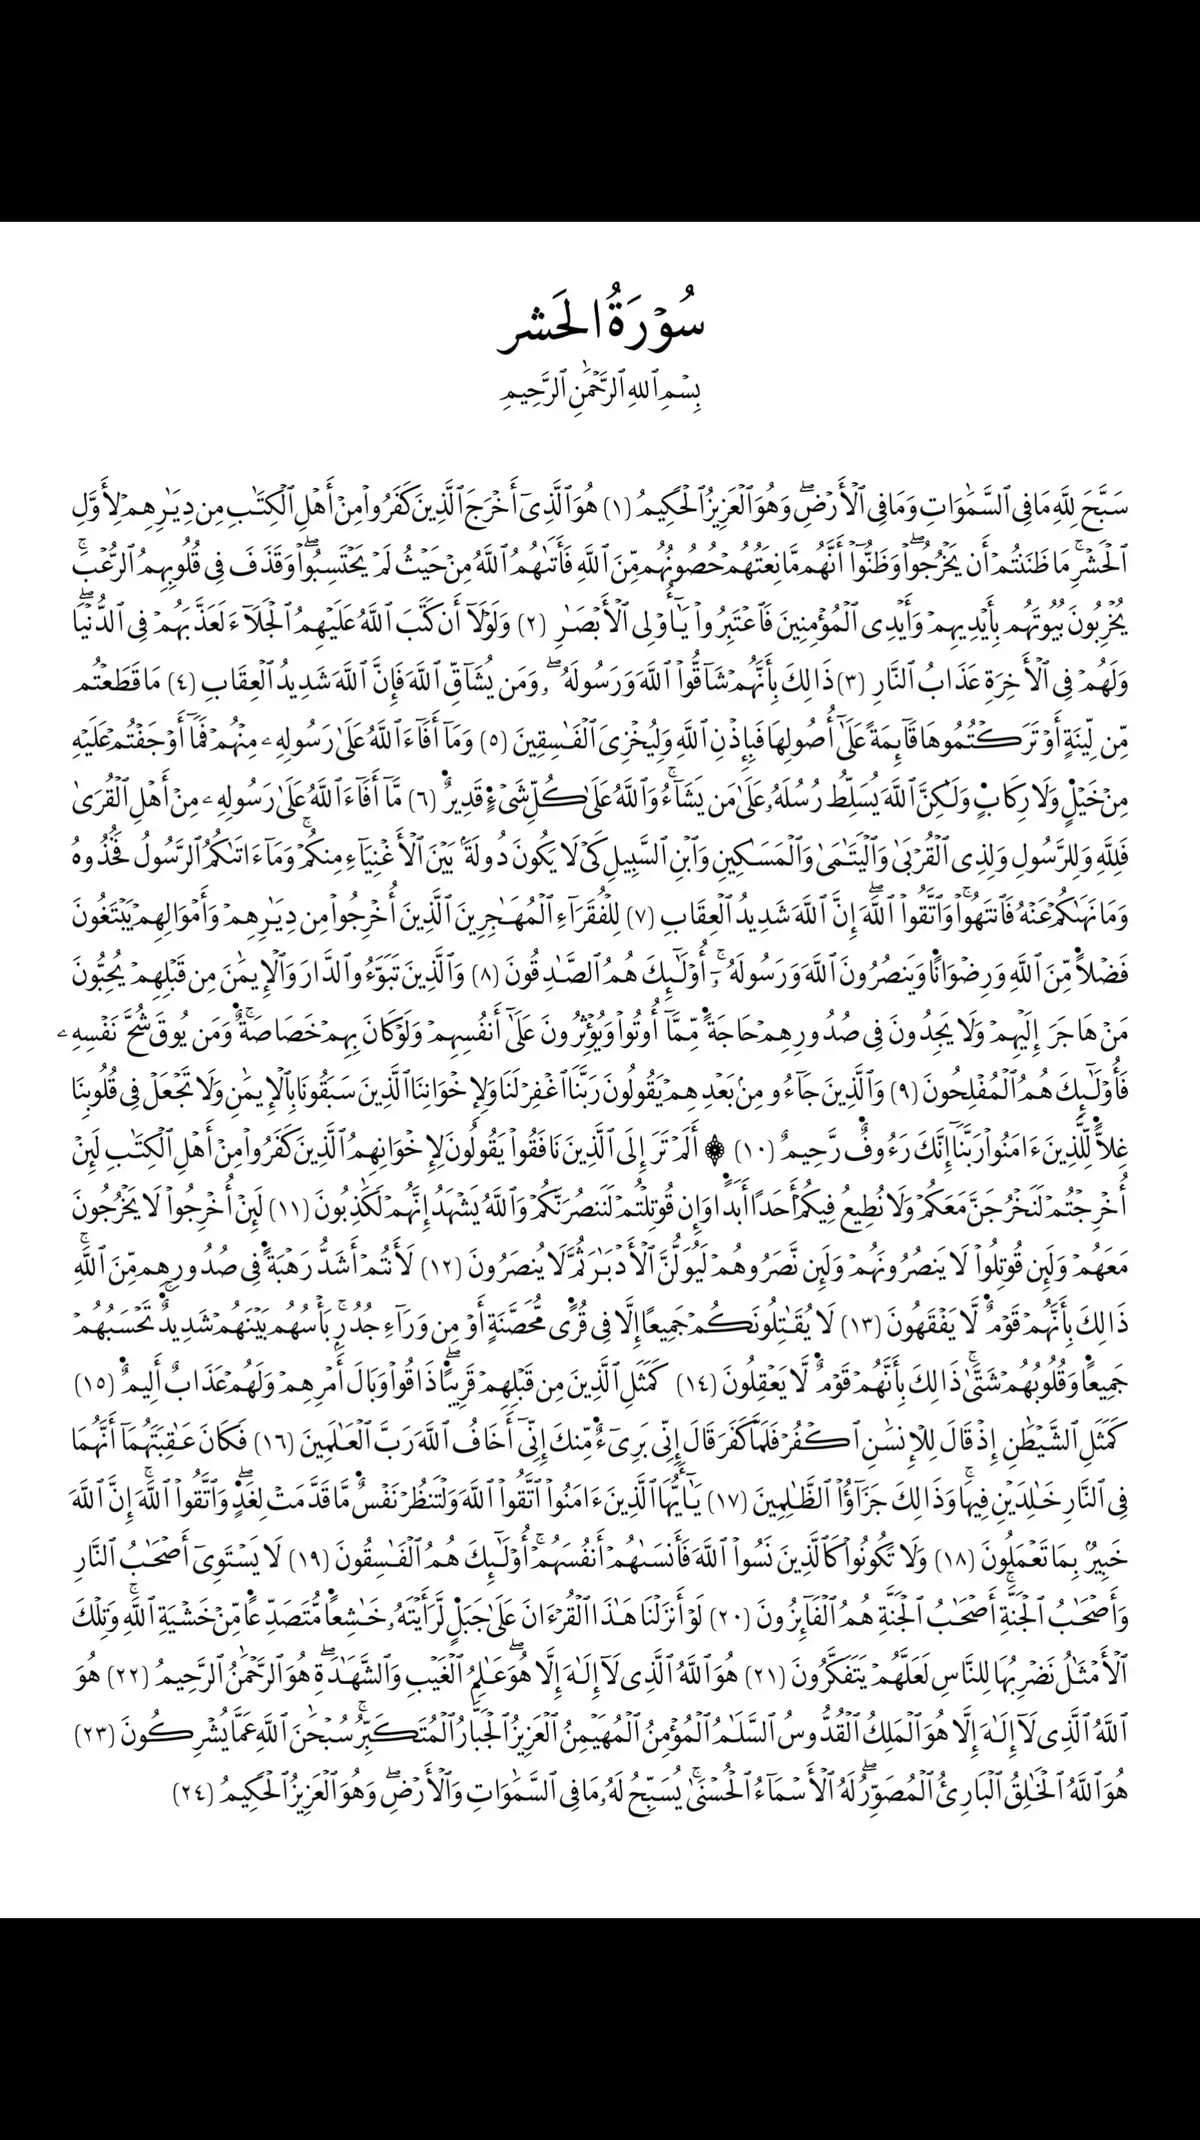 سُورَةُ الحَشر
بِسۡمِ ٱللهِ ٱلرَّحۡمَٰنِ ٱلرَّحِيمِ
سَبَّحَ لِلَّهِ مَا فِى ٱلسَّمَٰوَٰتِ وَمَا فِى ٱلۡأَرۡضِۖ وَهُوَ ٱلۡعَزِيزُ ٱلۡحَكِيمُ (١) هُوَ ٱلَّذِىٓ أَخۡرَجَ ٱلَّذِينَ كَفَرُواْ مِنۡ أَهۡلِ ٱلۡكِتَٰبِ مِن دِيَٰرِهِمۡ لِأَوَّلِ
ٱلۡحَشۡرِۚ مَا ظَنَنتُمۡ أَن يَخۡرُجُواْۖ وَظَنُّوٓاْ أَنَّهُم مَّانِعَتُهُمۡ حُصُونُهُم مِّنَ ٱللَّهِ فَأَتَىٰهُمُ ٱللَّهُ مِنۡ حَيۡثُ لَمۡ يَحۡتَسِبُواْۖ وَقَذَفَ فِى قُلُوبِهِمُ ٱلرُّعۡبَۚ
يُخۡرِبُونَ بُيُوتَهُم بِأَيۡدِيهِمۡ وَأَيۡدِى ٱلۡمُؤۡمِنِينَ فَٱعۡتَبِرُواْ يَٰٓأُوْلِى ٱلۡأَبۡصَٰرِ (٢) وَلَوۡلَآ أَن كَتَبَ ٱللَّهُ عَلَيۡهِمُ ٱلۡجَلَآءَ لَعَذَّبَهُمۡ فِى ٱلدُّنۡيَاۖ
وَلَهُمۡ فِى ٱلۡأَخِرَةِ عَذَابُ ٱلنَّارِ (٣) ذَٰلِكَ بِأَنَّهُمۡ شَآقُّواْ ٱللَّهَ وَرَسُولَهُۥۖ وَمَن يُشَآقِّ ٱللَّهَ فَإِنَّ ٱللَّهَ شَدِيدُ ٱلۡعِقَابِ (٤) مَا قَطَعۡتُم
مِّن لِّينَةٍ أَوۡ تَرَكۡتُمُوهَا قَآئِمَةً عَلَىٰٓ أُصُولِهَا فَبِإِذۡنِ ٱللَّهِ وَلِيُخۡزِىَ ٱلۡفَٰسِقِينَ (٥) وَمَآ أَفَآءَ ٱللَّهُ عَلَىٰ رَسُولِهِۦ مِنۡهُمۡ فَمَآ أَوۡجَفۡتُمۡ عَلَيۡهِ
مِنۡ خَيۡلٍ وَلَا رِكَابٍ وَلَٰكِنَّ ٱللَّهَ يُسَلِّطُ رُسُلَهُۥ عَلَىٰ مَن يَشَآءُۚ وَٱللَّهُ عَلَىٰ كُلِّ شَىۡءٍ قَدِيرٌ (٦) مَّآ أَفَآءَ ٱللَّهُ عَلَىٰ رَسُولِهِۦ مِنۡ أَهۡلِ ٱلۡقُرَىٰ
فَلِلَّهِ وَلِلرَّسُولِ وَلِذِى ٱلۡقُرۡبَىٰ وَٱلۡيَتَٰمَىٰ وَٱلۡمَسَٰكِينِ وَٱبۡنِ ٱلسَّبِيلِ كَىۡ لَا يَكُونَ دُولَةَۢ بَيۡنَ ٱلۡأَغۡنِيَآءِ مِنكُمۡۚ وَمَآ ءَاتَىٰكُمُ ٱلرَّسُولُ فَخُذُوهُ
وَمَا نَهَىٰكُمۡ عَنۡهُ فَٱنتَهُواْۚ وَٱتَّقُواْ ٱللَّهَۖ إِنَّ ٱللَّهَ شَدِيدُ ٱلۡعِقَابِ (٧) لِلۡفُقَرَآءِ ٱلۡمُهَٰجِرِينَ ٱلَّذِينَ أُخۡرِجُواْ مِن دِيَٰرِهِمۡ وَأَمۡوَٰلِهِمۡ يَبۡتَغُونَ
فَضۡلاً مِّنَ ٱللَّهِ وَرِضۡوَٰنًا وَيَنصُرُونَ ٱللَّهَ وَرَسُولَهُۥٓۚ أُوْلَٰٓئِكَ هُمُ ٱلصَّٰدِقُونَ (٨) وَٱلَّذِينَ تَبَوَّءُو ٱلدَّارَ وَٱلۡإِيمَٰنَ مِن قَبۡلِهِمۡ يُحِبُّونَ
مَنۡ هَاجَرَ إِلَيۡهِمۡ وَلَا يَجِدُونَ فِى صُدُورِهِمۡ حَاجَةً مِّمَّآ أُوتُواْ وَيُؤۡثِرُونَ عَلَىٰٓ أَنفُسِهِمۡ وَلَوۡ كَانَ بِهِمۡ خَصَاصَةٌۚ وَمَن يُوقَ شُحَّ نَفۡسِهِۦ
فَأُوْلَٰٓئِكَ هُمُ ٱلۡمُفۡلِحُونَ (٩) وَٱلَّذِينَ جَآءُو مِنۢ بَعۡدِهِمۡ يَقُولُونَ رَبَّنَا ٱغۡفِرۡ لَنَا وَلِإِخۡوَٰنِنَا ٱلَّذِينَ سَبَقُونَا بِٱلۡإِيمَٰنِ وَلَا تَجۡعَلۡ فِى قُلُوبِنَا
غِلاًّ لِّلَّذِينَ ءَامَنُواْ رَبَّنَآ إِنَّكَ رَءُوفٌ رَّحِيمٌ (١٠) ۞ أَلَمۡ تَرَ إِلَى ٱلَّذِينَ نَافَقُواْ يَقُولُونَ لِإِخۡوَٰنِهِمُ ٱلَّذِينَ كَفَرُواْ مِنۡ أَهۡلِ ٱلۡكِتَٰبِ لَئِنۡ
أُخۡرِجۡتُمۡ لَنَخۡرُجَنَّ مَعَكُمۡ وَلَا نُطِيعُ فِيكُمۡ أَحَدًا أَبَدًا وَإِن قُوتِلۡتُمۡ لَنَنصُرَنَّكُمۡ وَٱللَّهُ يَشۡهَدُ إِنَّهُمۡ لَكَٰذِبُونَ (١١) لَئِنۡ أُخۡرِجُواْ لَا يَخۡرُجُونَ
مَعَهُمۡ وَلَئِن قُوتِلُواْ لَا يَنصُرُونَهُمۡ وَلَئِن نَّصَرُوهُمۡ لَيُوَلُّنَّ ٱلۡأَدۡبَٰرَ ثُمَّ لَا يُنصَرُونَ (١٢) لَأَنتُمۡ أَشَدُّ رَهۡبَةً فِى صُدُورِهِم مِّنَ ٱللَّهِۚ
ذَٰلِكَ بِأَنَّهُمۡ قَوۡمٌ لَّا يَفۡقَهُونَ (١٣) لَا يُقَٰتِلُونَكُمۡ جَمِيعًا إِلَّا فِى قُرًى مُّحَصَّنَةٍ أَوۡ مِن وَرَآءِ جُدُرِۭۚ بَأۡسُهُم بَيۡنَهُمۡ شَدِيدٌۚ تَحۡسَبُهُمۡ
جَمِيعًا وَقُلُوبُهُمۡ شَتَّىٰۚ ذَٰلِكَ بِأَنَّهُمۡ قَوۡمٌ لَّا يَعۡقِلُونَ (١٤) كَمَثَلِ ٱلَّذِينَ مِن قَبۡلِهِمۡ قَرِيبًاۖ ذَاقُواْ وَبَالَ أَمۡرِهِمۡ وَلَهُمۡ عَذَابٌ أَلِيمٌ (١٥)
كَمَثَلِ ٱلشَّيۡطَٰنِ إِذۡ قَالَ لِلۡإِنسَٰنِ ٱكۡفُرۡ فَلَمَّا كَفَرَ قَالَ إِنِّى بَرِىٓءٌ مِّنكَ إِنِّىٓ أَخَافُ ٱللَّهَ رَبَّ ٱلۡعَٰلَمِينَ (١٦) فَكَانَ عَٰقِبَتَهُمَآ أَنَّهُمَا
فِى ٱلنَّارِ خَٰلِدَيۡنِ فِيهَاۚ وَذَٰلِكَ جَزَٰٓؤُاْ ٱلظَّٰلِمِينَ (١٧) يَٰٓأَيُّهَا ٱلَّذِينَ ءَامَنُواْ ٱتَّقُواْ ٱللَّهَ وَلۡتَنظُرۡ نَفۡسٌ مَّا قَدَّمَتۡ لِغَدٍۖ وَٱتَّقُواْ ٱللَّهَۚ إِنَّ ٱللَّهَ
خَبِيرُۢ بِمَا تَعۡمَلُونَ (١٨) وَلَا تَكُونُواْ كَٱلَّذِينَ نَسُواْ ٱللَّهَ فَأَنسَىٰهُمۡ أَنفُسَهُمۡۚ أُوْلَٰٓئِكَ هُمُ ٱلۡفَٰسِقُونَ (١٩) لَا يَسۡتَوِىٓ أَصۡحَٰبُ ٱلنَّارِ
وَأَصۡحَٰبُ ٱلۡجَنَّةِۚ أَصۡحَٰبُ ٱلۡجَنَّةِ هُمُ ٱلۡفَآئِزُونَ (٢٠) لَوۡ أَنزَلۡنَا هَٰذَا ٱلۡقُرۡءَانَ عَلَىٰ جَبَلٍ لَّرَأَيۡتَهُۥ خَٰشِعًا مُّتَصَدِّعًا مِّنۡ خَشۡيَةِ ٱللَّهِۚ وَتِلۡكَ
ٱلۡأَمۡثَٰلُ نَضۡرِبُهَا لِلنَّاسِ لَعَلَّهُمۡ يَتَفَكَّرُونَ (٢١) هُوَ ٱللَّهُ ٱلَّذِى لَآ إِلَٰهَ إِلَّا هُوَۖ عَٰلِمُ ٱلۡغَيۡبِ وَٱلشَّهَٰدَةِۖ هُوَ ٱلرَّحۡمَٰنُ ٱلرَّحِيمُ (٢٢) هُوَ
ٱللَّهُ ٱلَّذِى لَآ إِلَٰهَ إِلَّا هُوَ ٱلۡمَلِكُ ٱلۡقُدُّوسُ ٱلسَّلَٰمُ ٱلۡمُؤۡمِنُ ٱلۡمُهَيۡمِنُ ٱلۡعَزِيزُ ٱلۡجَبَّارُ ٱلۡمُتَكَبِّرُۚ سُبۡحَٰنَ ٱللَّهِ عَمَّا يُشۡرِكُونَ (٢٣)
هُوَ ٱللَّهُ ٱلۡخَٰلِقُ ٱلۡبَارِئُ ٱلۡمُصَوِّرُۖ لَهُ ٱلۡأَسۡمَآءُ ٱلۡحُسۡنَىٰۚ يُسَبِّحُ لَهُۥ مَا فِى ٱلسَّمَٰوَٰتِ وَٱلۡأَرۡضِۖ وَهُوَ ٱلۡعَزِيزُ ٱلۡحَكِيمُ (٢٤)